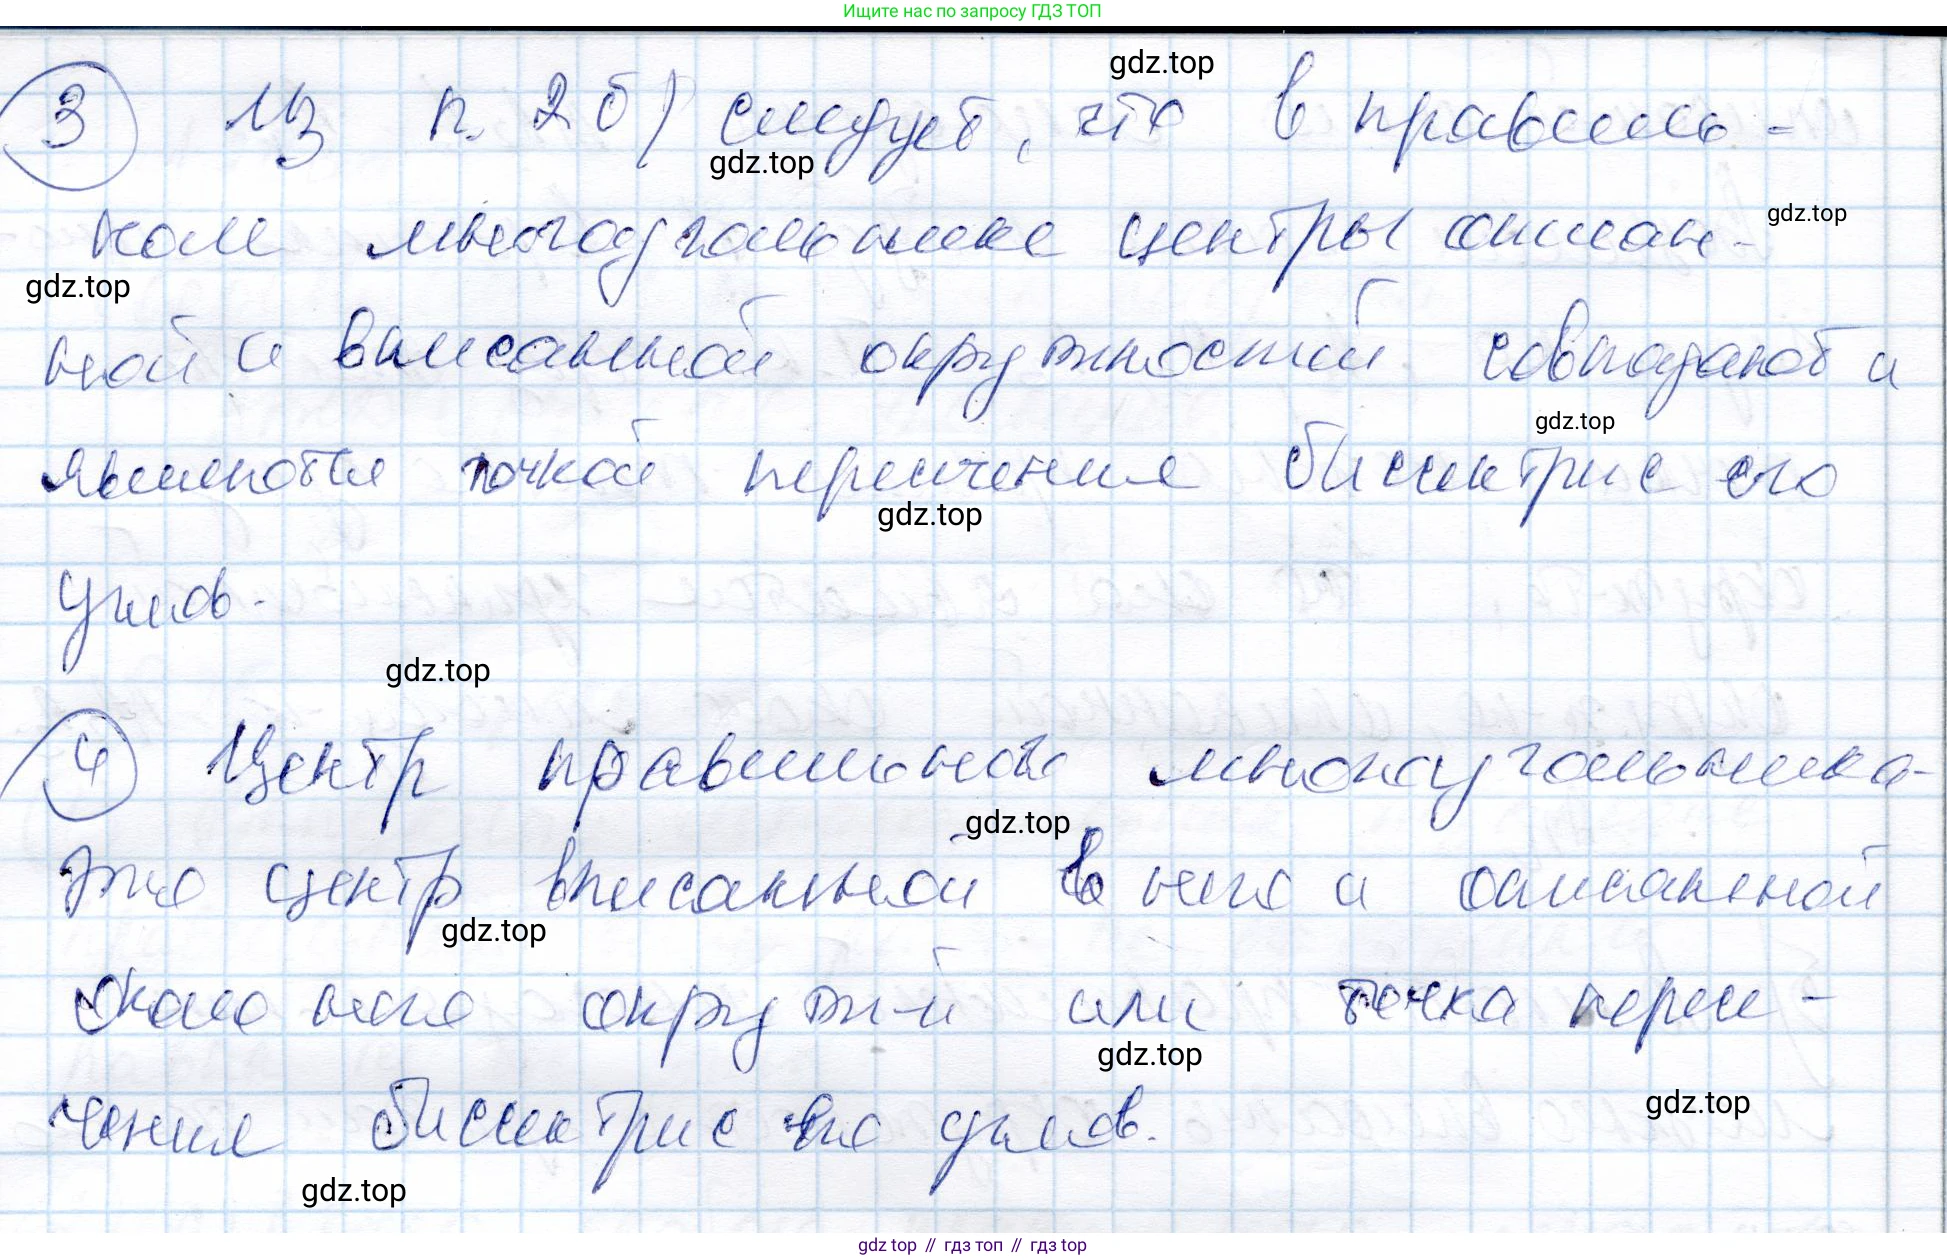 Ищите нас по запросу ГДЗ ТОП
gdz.top
3 Из п. 2 б) следует, что в правиль-
gdz.top
gdz.top
ном многоугольнике центры описан-
gdz.top
ной и вписанной окружностей совпадают и
gdz.top
являются точкой пересечения биссектрис его
gdz.top
углов.
gdz.top
4 Центр правильного многоугольника-
gdz.top
это центр вписанной в него и описанной
gdz.top
около него окруж-й или точка пересе-
gdz.top
gdz.top
чения биссектрис его углов.
gdz.top
gdz top // гдз топ // гдз top